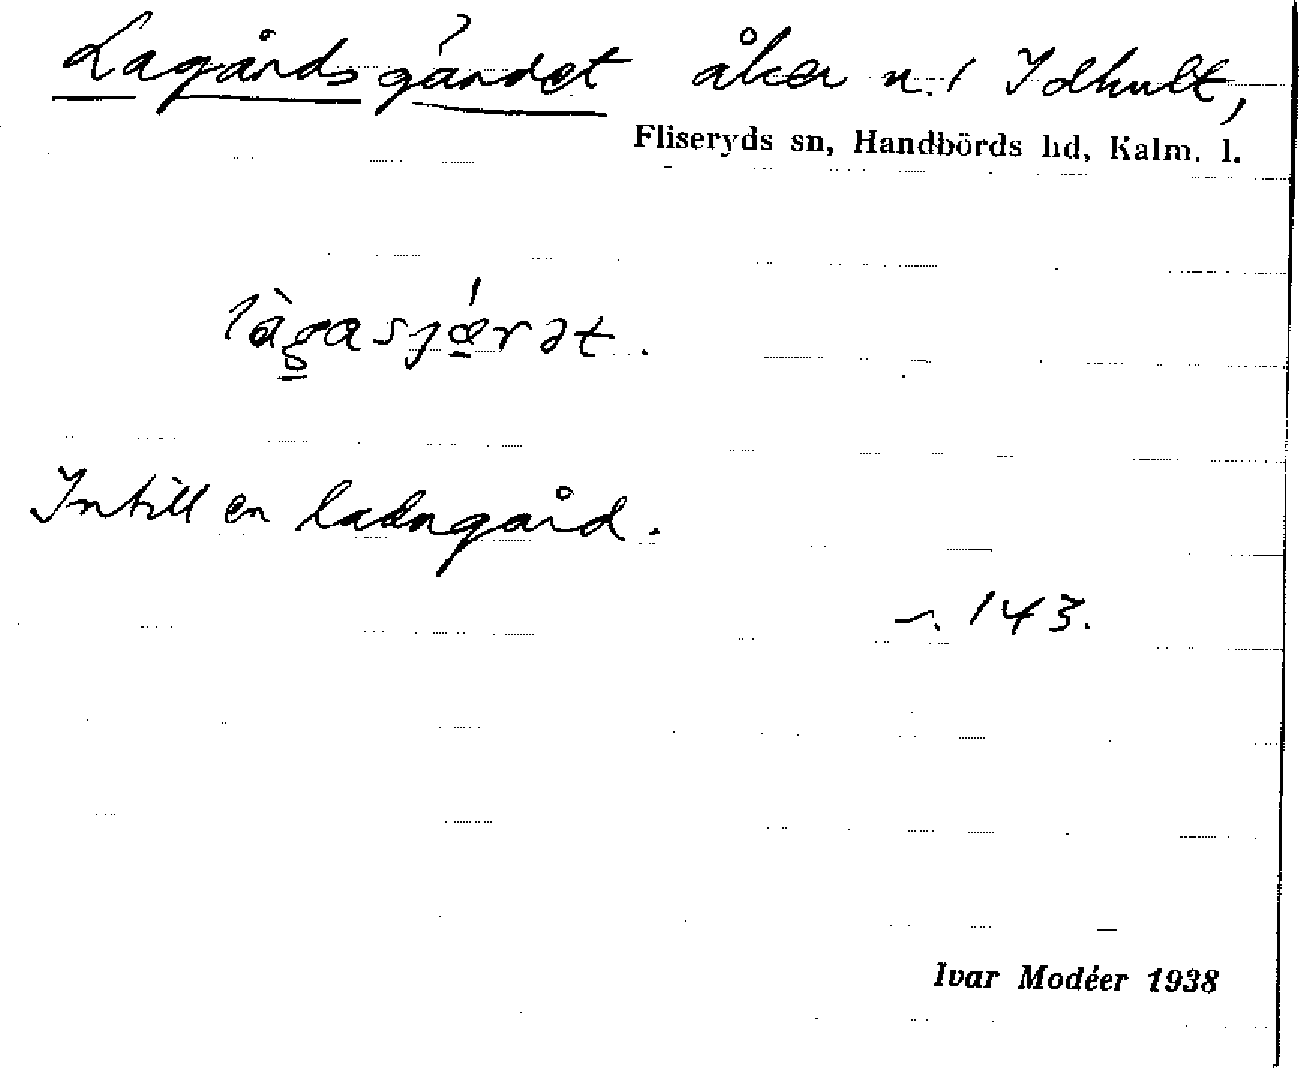 Lagårdsgärdet åker n. / Idhult,
Fliseryds sn, Handbörds hd, Kalm. l.
làgasjǽrət.
Intill en ladugård.
n. 143.
Ivar Modéer 1938